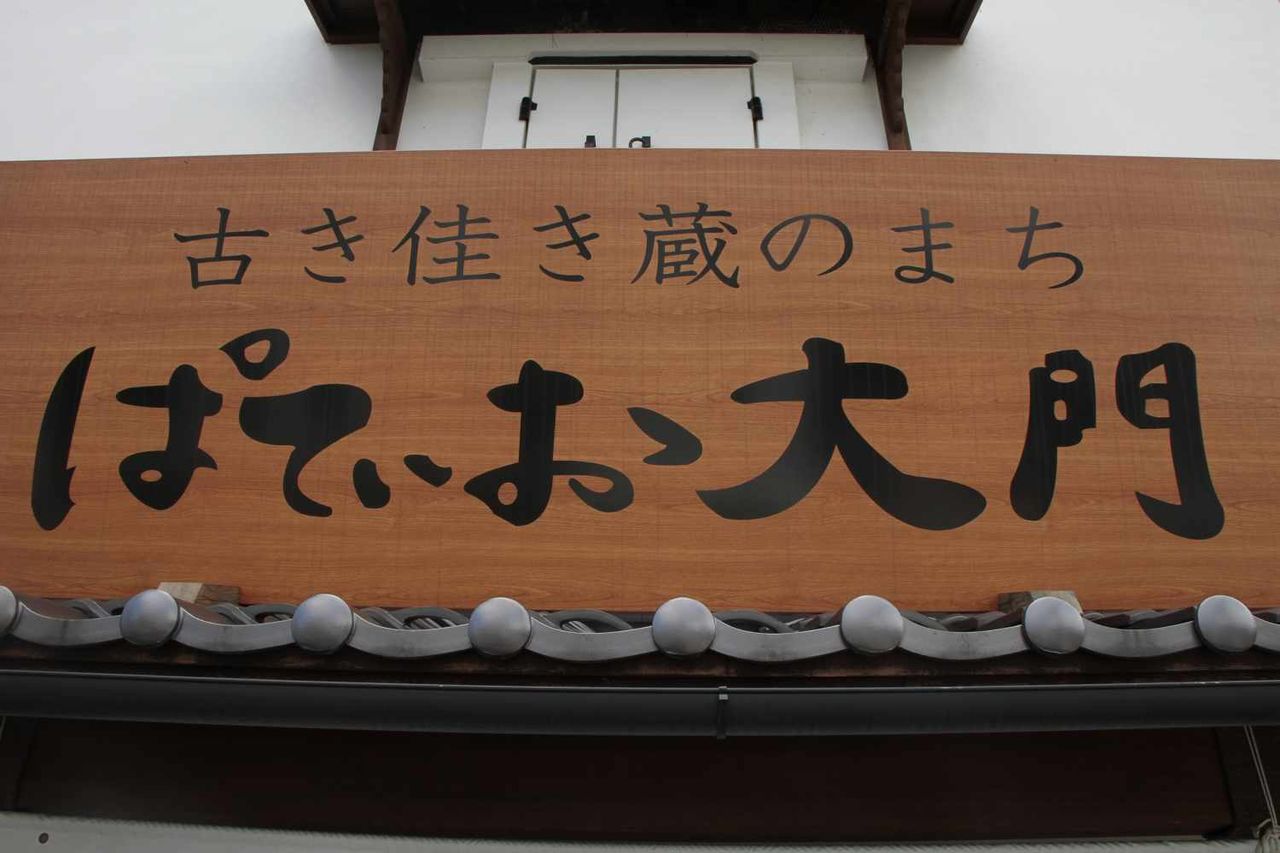 古き佳き蔵のまち
ぱてぃお大門